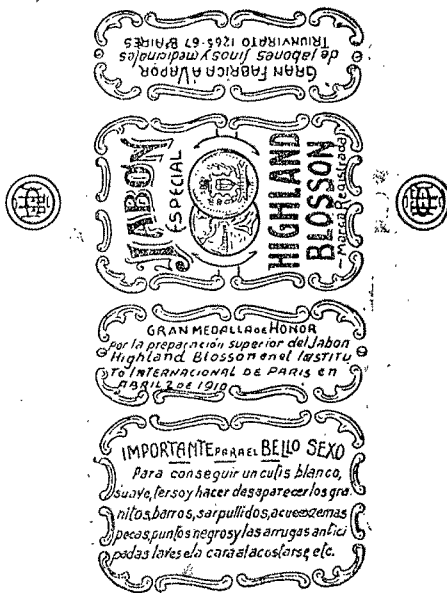 GRAN FABRICA A VAPOR
de jabones finos y medicinales
TRIUNVIRATO 1265-67 Bs AIRES
JABON
ESPECIAL
HIGHLAND
BLOSSON
—Marca Registrada—
GRAN MEDALLA DE HONOR
por la preparación superior del Jabon
Highland Blosson en el Institu
to INTERNACIONAL DE PARIS en
ABRIL 2 DE 1910
IMPORTANTE PARA EL BELLO SEXO
Para conseguir un cutis blanco,
suave, terso y hacer desaparecer los gra
nitos, barros, sarpullidos, acue eczemas
pecas, puntos negros y las arrugas antici
padas lavese la cara al acostarse, etc.